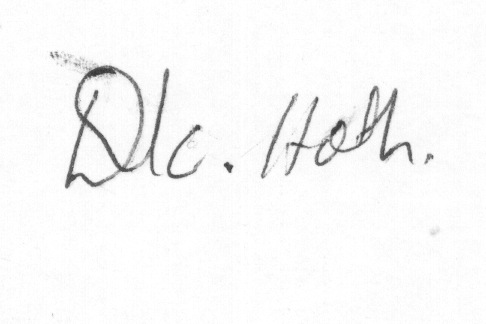 Dlc. Hoth.